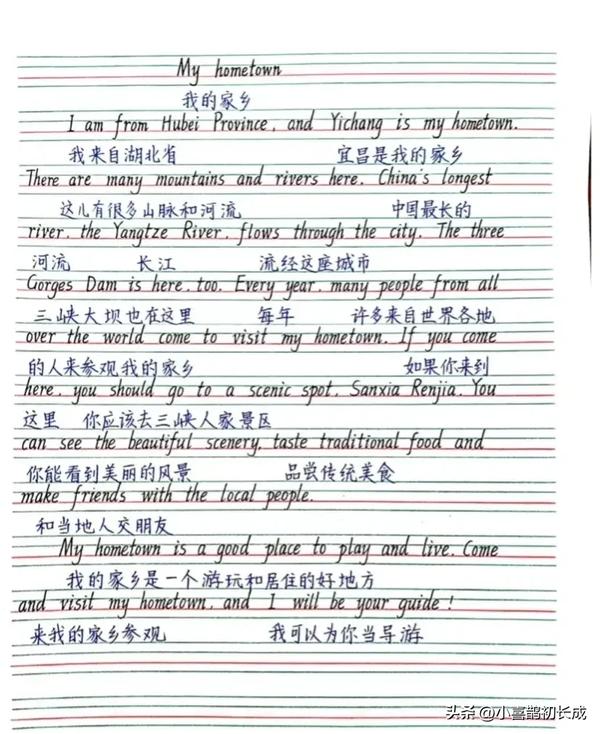 My hometown
我的家乡
I am from Hubei Province, and Yichang is my hometown.
我来自湖北省 宜昌是我的家乡
There are many mountains and rivers here. China's longest
这儿有很多山脉和河流 中国最长的
river, the Yangtze River, flows through the city. The three
河流 长江 流经这座城市
Gorges Dam is here, too. Every year, many people from all
三峡大坝也在这里 每年 许多来自世界各地
over the world come to visit my hometown. If you come
的人来参观我的家乡 如果你来到
here, you should go to a scenic spot, Sanxia Renjia. You
这里 你应该去三峡人家景区
can see the beautiful scenery, taste traditional food and
你能看到美丽的风景 品尝传统美食
make friends with the local people.
和当地人交朋友
My hometown is a good place to play and live. Come
我的家乡是一个游玩和居住的好地方
and visit my hometown, and I will be your guide!
来我的家乡参观 我可以为你当导游
头条 @小喜鹊初长成